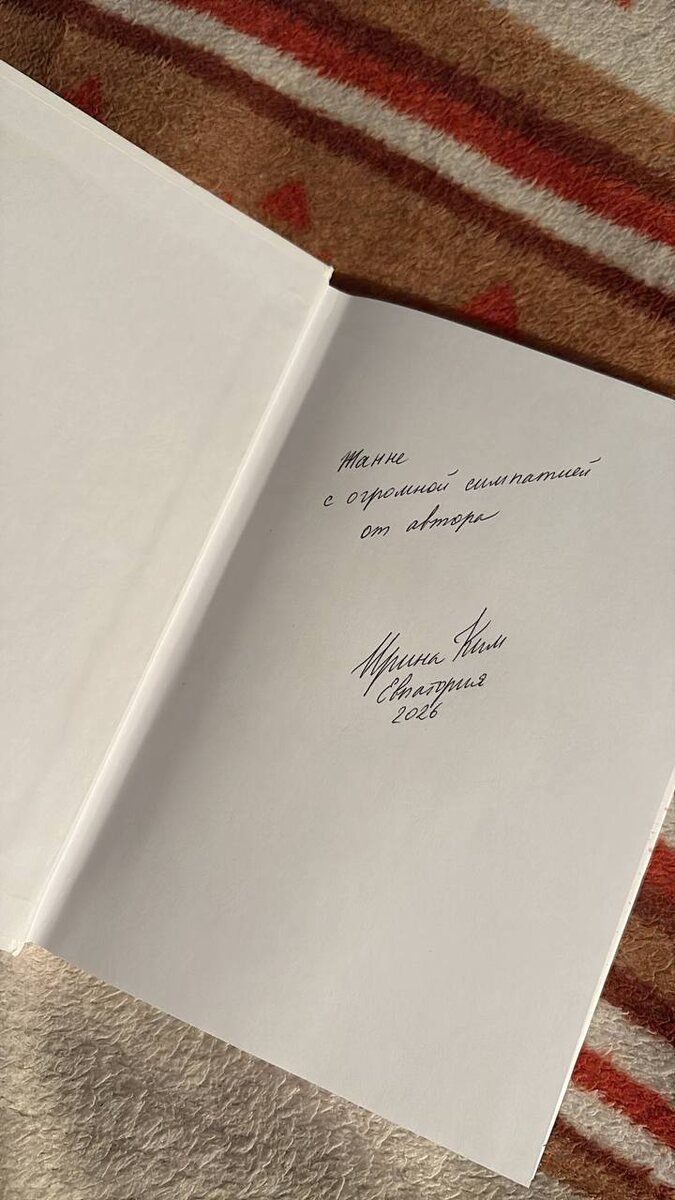 Жанне
с огромной симпатией
от автора
Ирина Ким
Евпатория
2026